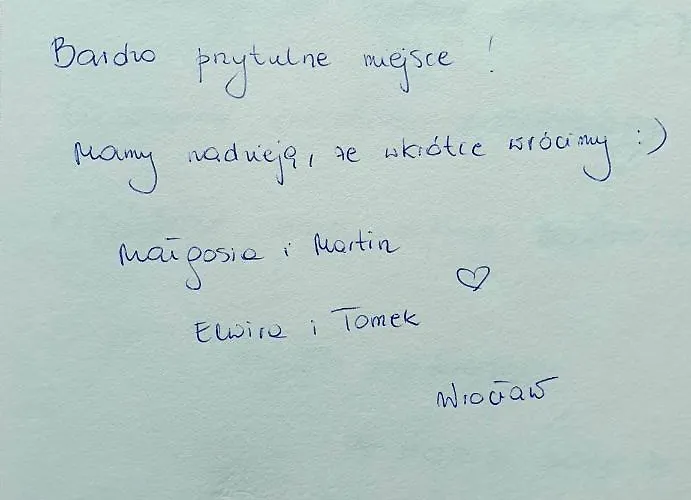 Bardzo przytulne miejsce!
Mamy nadzieję, że wkrótce wrócimy :)
Małgosia i Martin
Elwira i Tomek
Wrocław